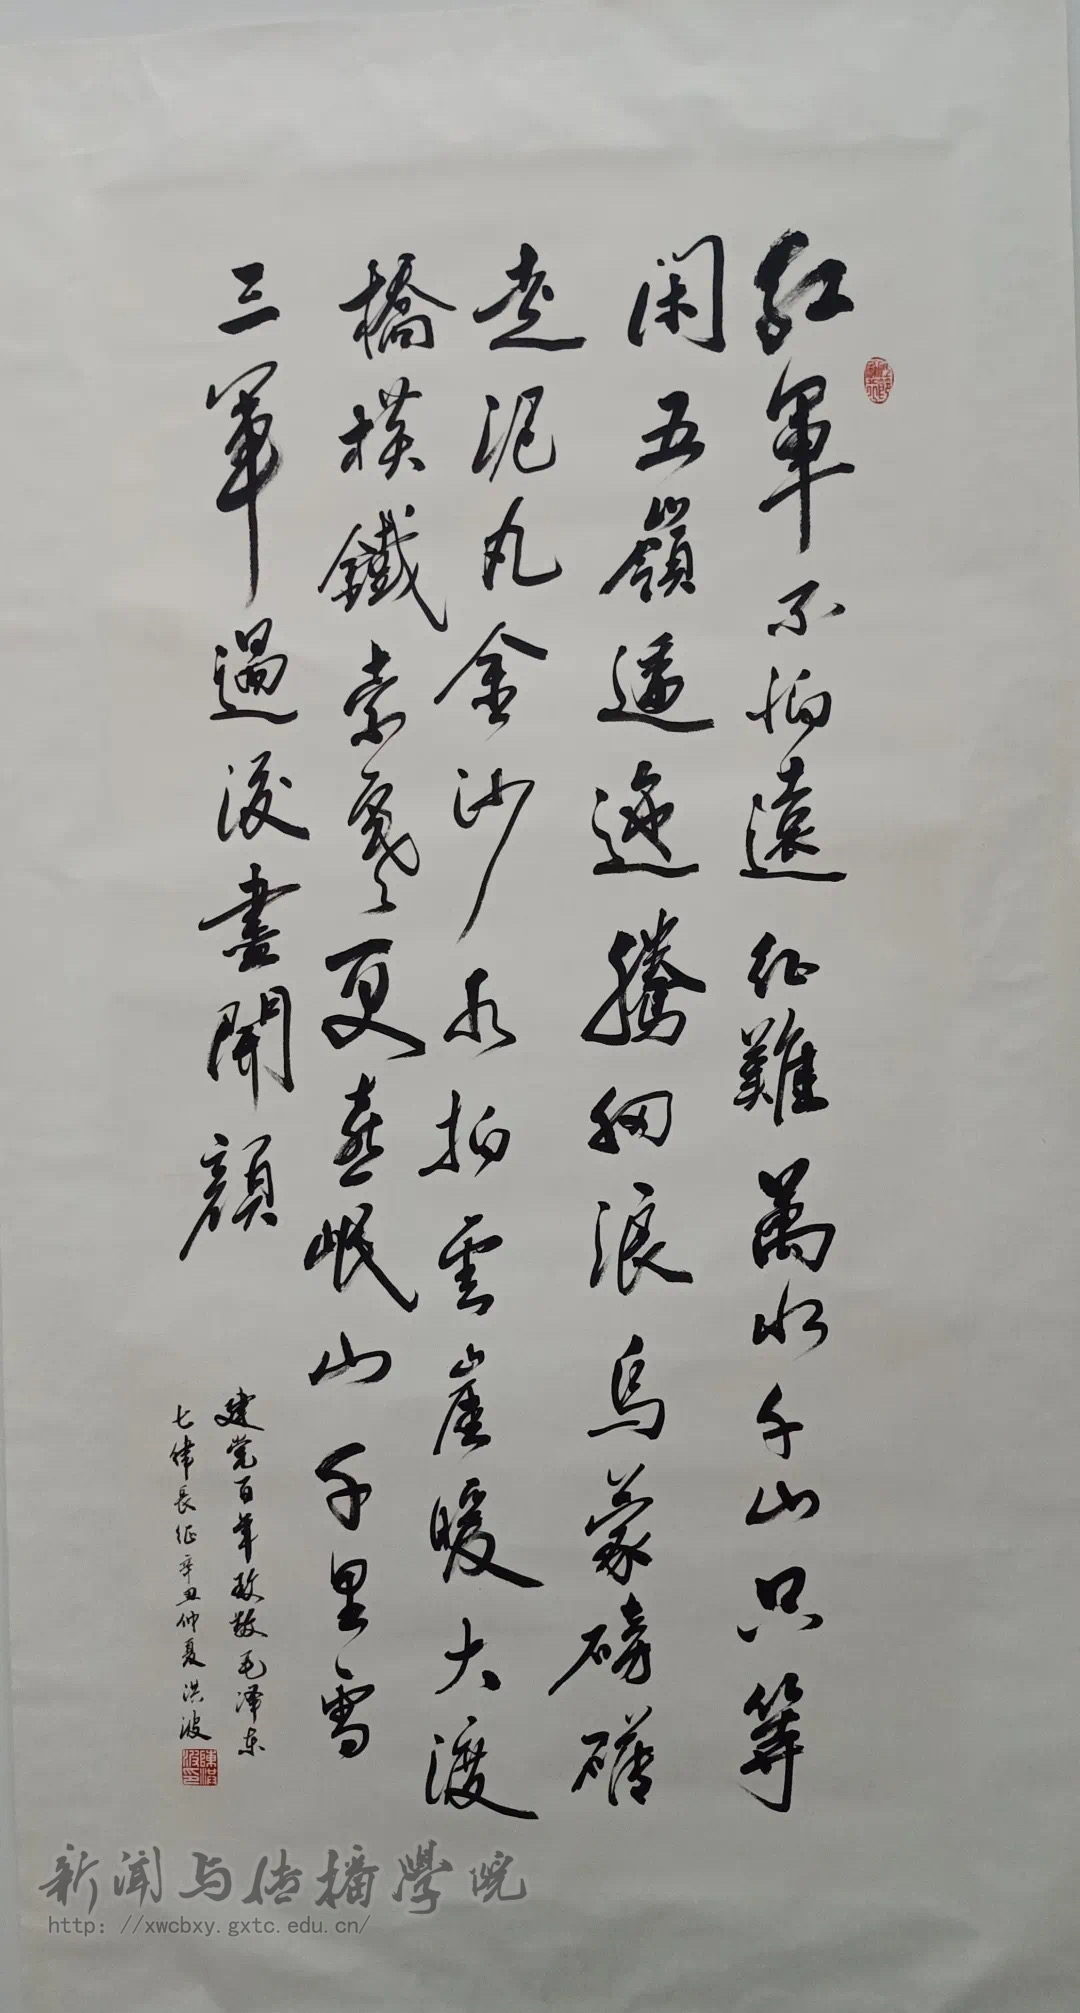 紅軍不怕遠征難萬水千山只等
闲五嶺逶迤騰細浪烏蒙磅礴
走泥丸金沙水拍雲崖暖大渡
橋横鐵索寒更喜岷山千里雪
三軍過後盡開顏
建党百年致敬毛泽东
七律長征辛丑仲夏洪波
陳洪波印
新闻与传播學院
http: //xwcbxy.gxtc.edu.cn/